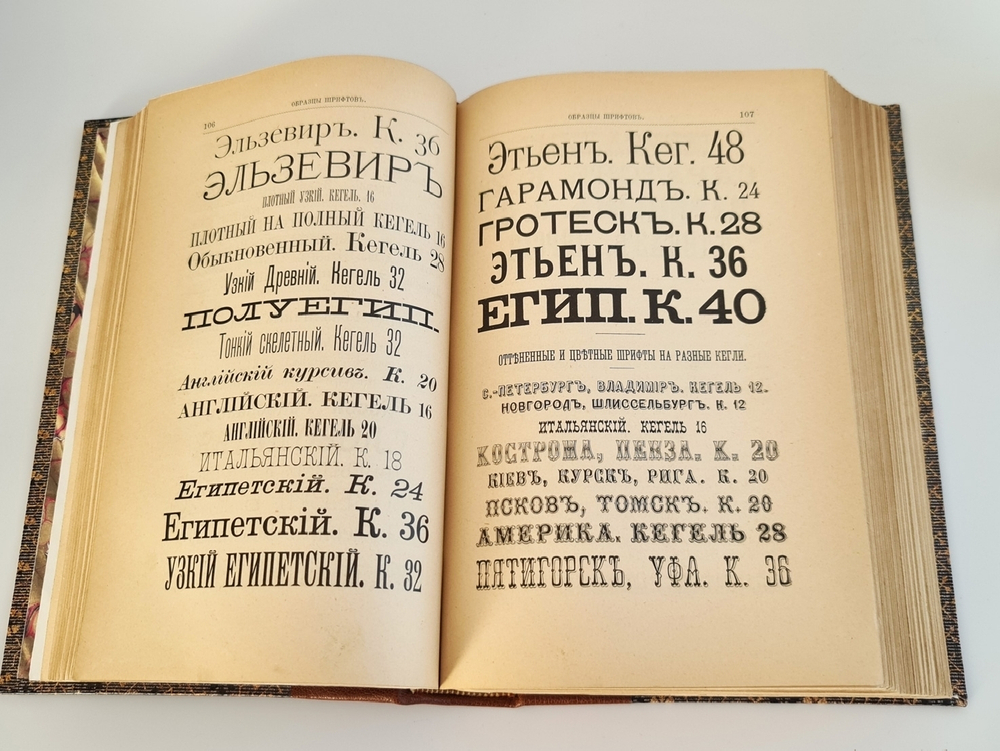 106
ОБРАЗЦЫ ШРИФТОВЪ.
Эльзевиръ. К. 36
ЭЛЬЗЕВИРЪ
ПЛОТНЫЙ УЗКІЙ. КЕГЕЛЬ. 16
ПЛОТНЫЙ НА ПОЛНЫЙ КЕГЕЛЬ 16
Обыкновенный. Кегель 28
Узкій Древній. Кегель 32
ПОЛУЕГИП.
Тонкій скелетный. Кегель 32
Англійскій курсивъ. К. 20
АНГЛІЙСКІЙ. КЕГЕЛЬ 16
АНГЛІЙСКІЙ. КЕГЕЛЬ 20
ИТАЛЬЯНСКІЙ. К. 18
Египетскій. К. 24
Египетскій. К. 36
УЗКІЙ ЕГИПЕТСКІЙ. К. 32
ОБРАЗЦЫ ШРИФТОВЪ.
107
Этьенъ. Кег. 48
ГАРАМОНДЪ. К. 24
ГРОТЕСКЪ. К. 28
ЭТЬЕНЪ. К. 36
ЕГИП. К. 40
ОТТѢНЕННЫЕ И ЦВѢТНЫЕ ШРИФТЫ НА РАЗНЫЕ КЕГЛИ.
С.-ПЕТЕРБУРГЪ, ВЛАДИМІРЪ. КЕГЕЛЬ 12.
НОВГОРОДЪ, ШЛИССЕЛЬБУРГЪ. К. 12
ИТАЛЬЯНСКІЙ. КЕГЕЛЬ 16
КОСТРОМА, ПЕНЗА. К. 20
КІЕВЪ, КУРСКЪ, РИГА. К. 20
ПСКОВЪ, ТОМСКЪ. К. 20
АМЕРИКА. КЕГЕЛЬ 28
ПЯТИГОРСКЪ, УФА. К. 36